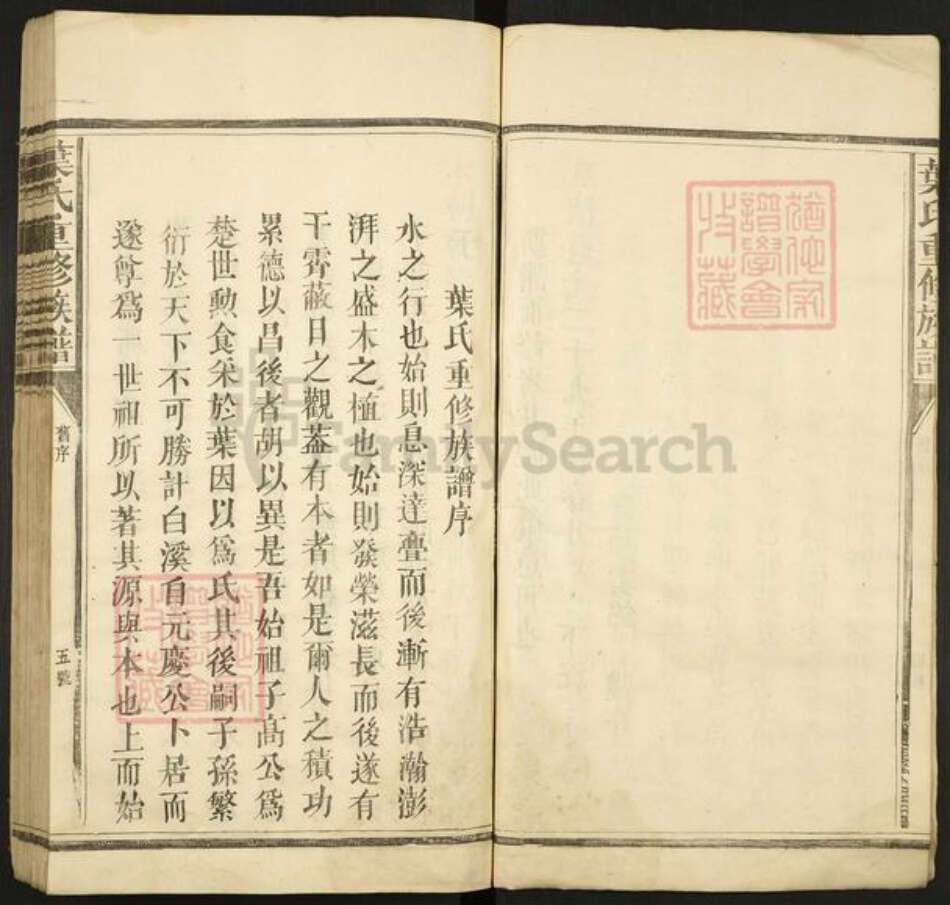 葉氏重修族譜
猶他家譜學會收藏
葉氏重修族譜序
水之行也始則息深達亹而後漸有浩瀚澎
湃之盛木之植也始則發榮滋長而後遂有
干霄蔽日之觀葢有本者如是爾人之積功
累德以昌後者胡以異是吾始祖子高公爲
楚世勳食采於葉因以爲氏其後嗣子孫繁
衍於天下不可勝計白溪自元慶公卜居而
遂尊爲一世祖所以著其源與本也上而始
葉氏重修族譜
舊序
五號
FamilySearch